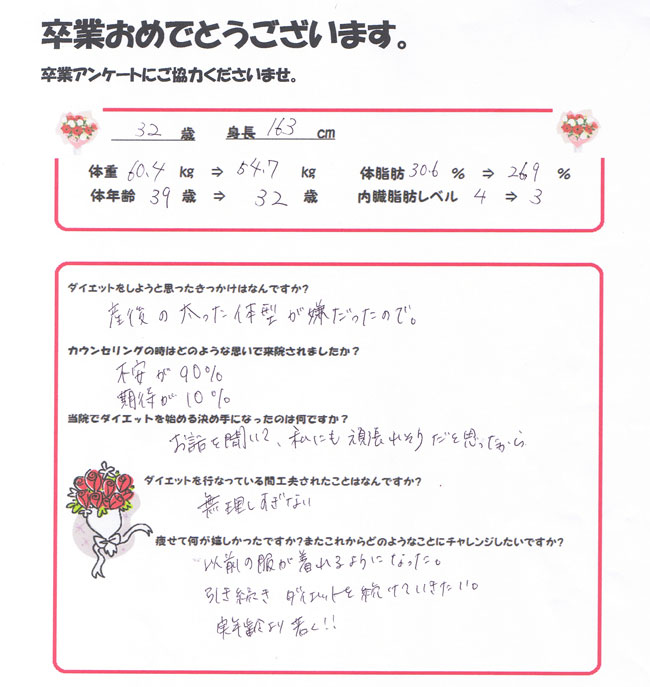 卒業おめでとうございます。
卒業アンケートにご協力くださいませ。
32 歳 身長 163 cm
体重 60.4 kg ⇒ 54.7 kg 体脂肪 30.6 % ⇒ 26.9 %
体年齢 39 歳 ⇒ 32 歳 内臓脂肪レベル 4 ⇒ 3
ダイエットをしようと思ったきっかけはなんですか?
産後の太った体型が嫌だったので。
カウンセリングの時はどのような思いで来院されましたか?
不安が90%
期待が10%
当院でダイエットを始める決め手になったのは何ですか?
お話を聞いて、私にも頑張れそうだと思ったから
ダイエットを行なっている間工夫されたことはなんですか?
無理しすぎない
痩せて何が嬉しかったですか?またこれからどのようなことにチャレンジしたいですか?
以前の服が着れるようになった。
引き続きダイエットを続けていきたい。
実年齢より若く!!